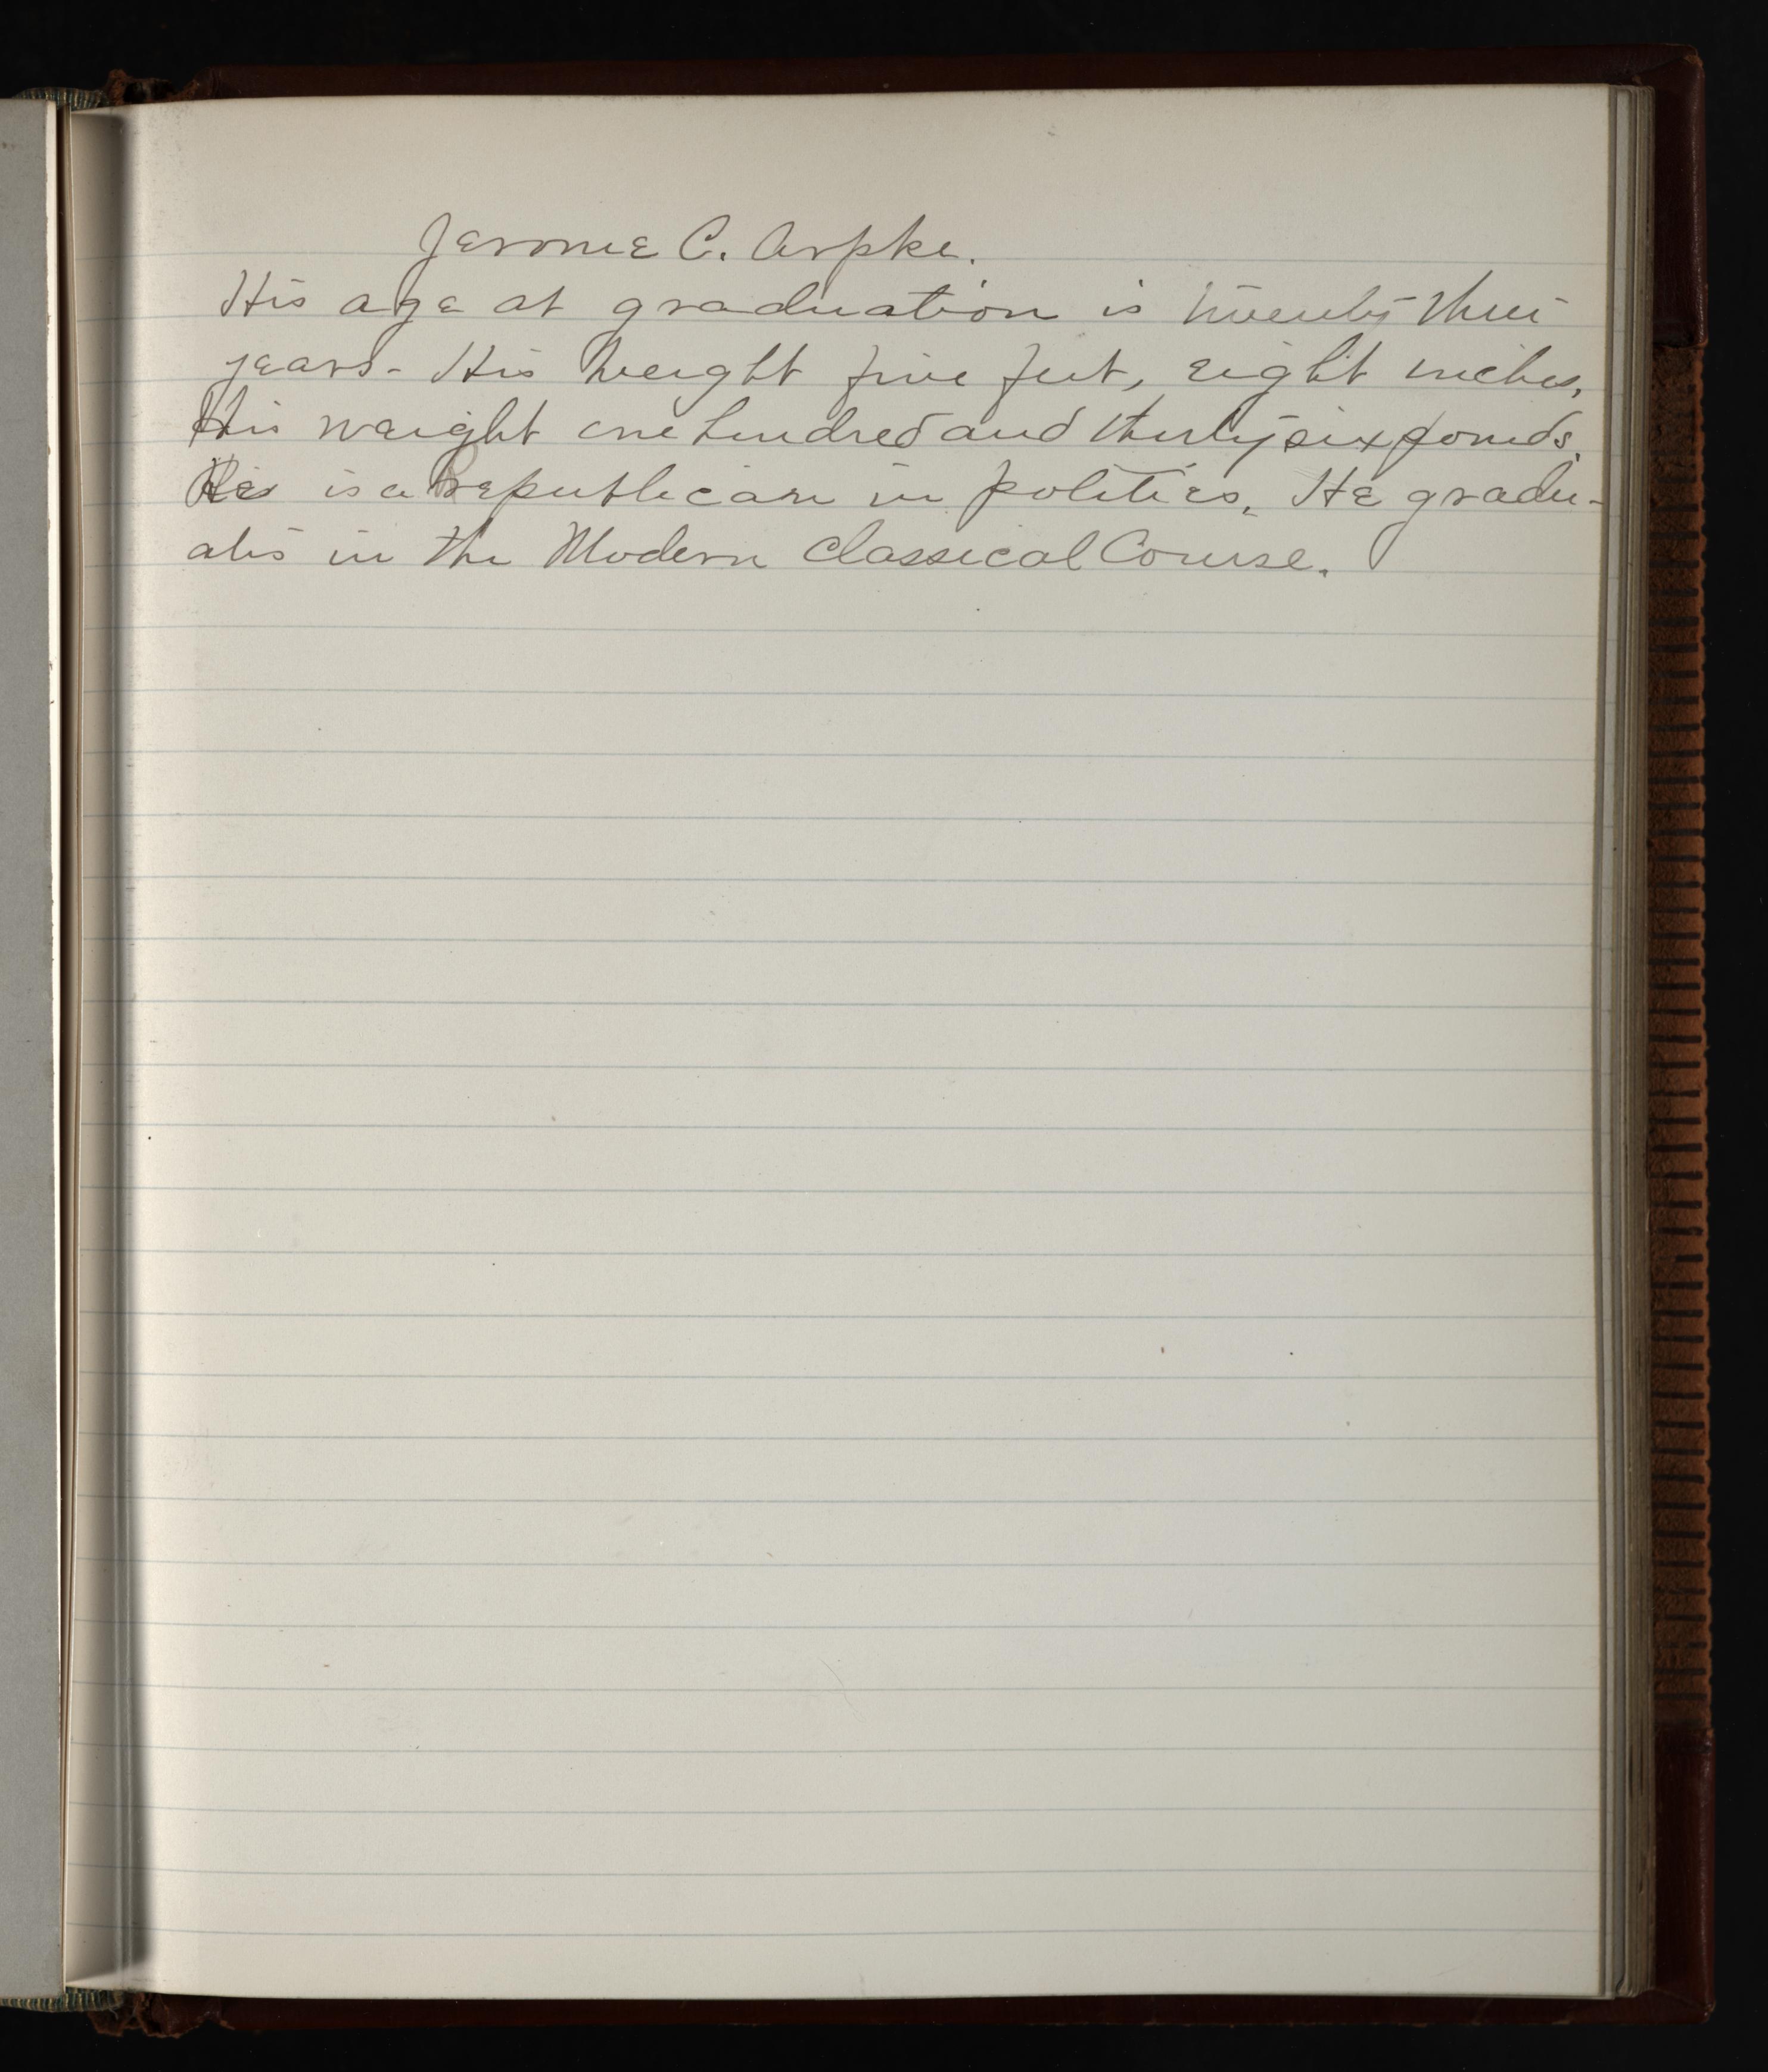 Jerome C. Arpke.
His age at graduation is twenty three
years. His height five feet, eight inches,
his weight one hundred and thirty six pounds.
He is a Republican in politics. He gradu-
ates in the Modern Classical Course.